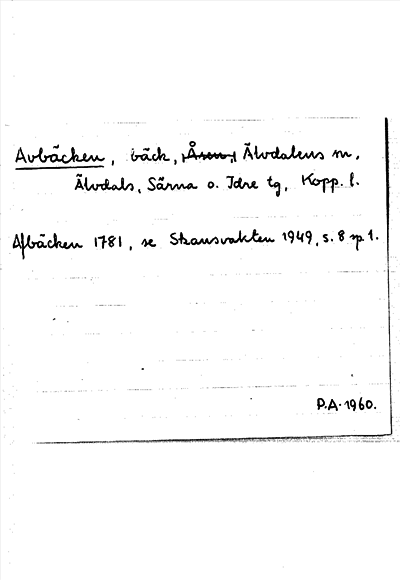 Avbäcken, bäck, Åsen, Älvdalens sn,
Älvdals, Särna o. Idre tg, Kopp. l.
Afbäcken 1781, se Skansvakten 1949, s. 8 sp. 1.
P.A. 1960.